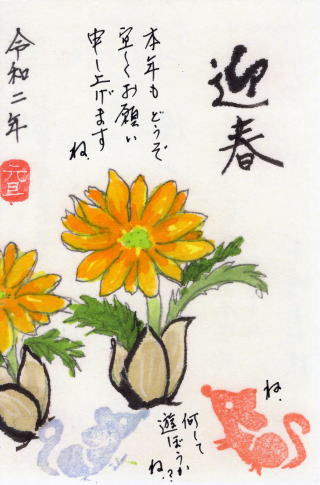 迎春
本年もどうぞ
宜しくお願い
申し上げます
ね。
令和二年
元旦
ね。
何して
遊ぼうか
ね?